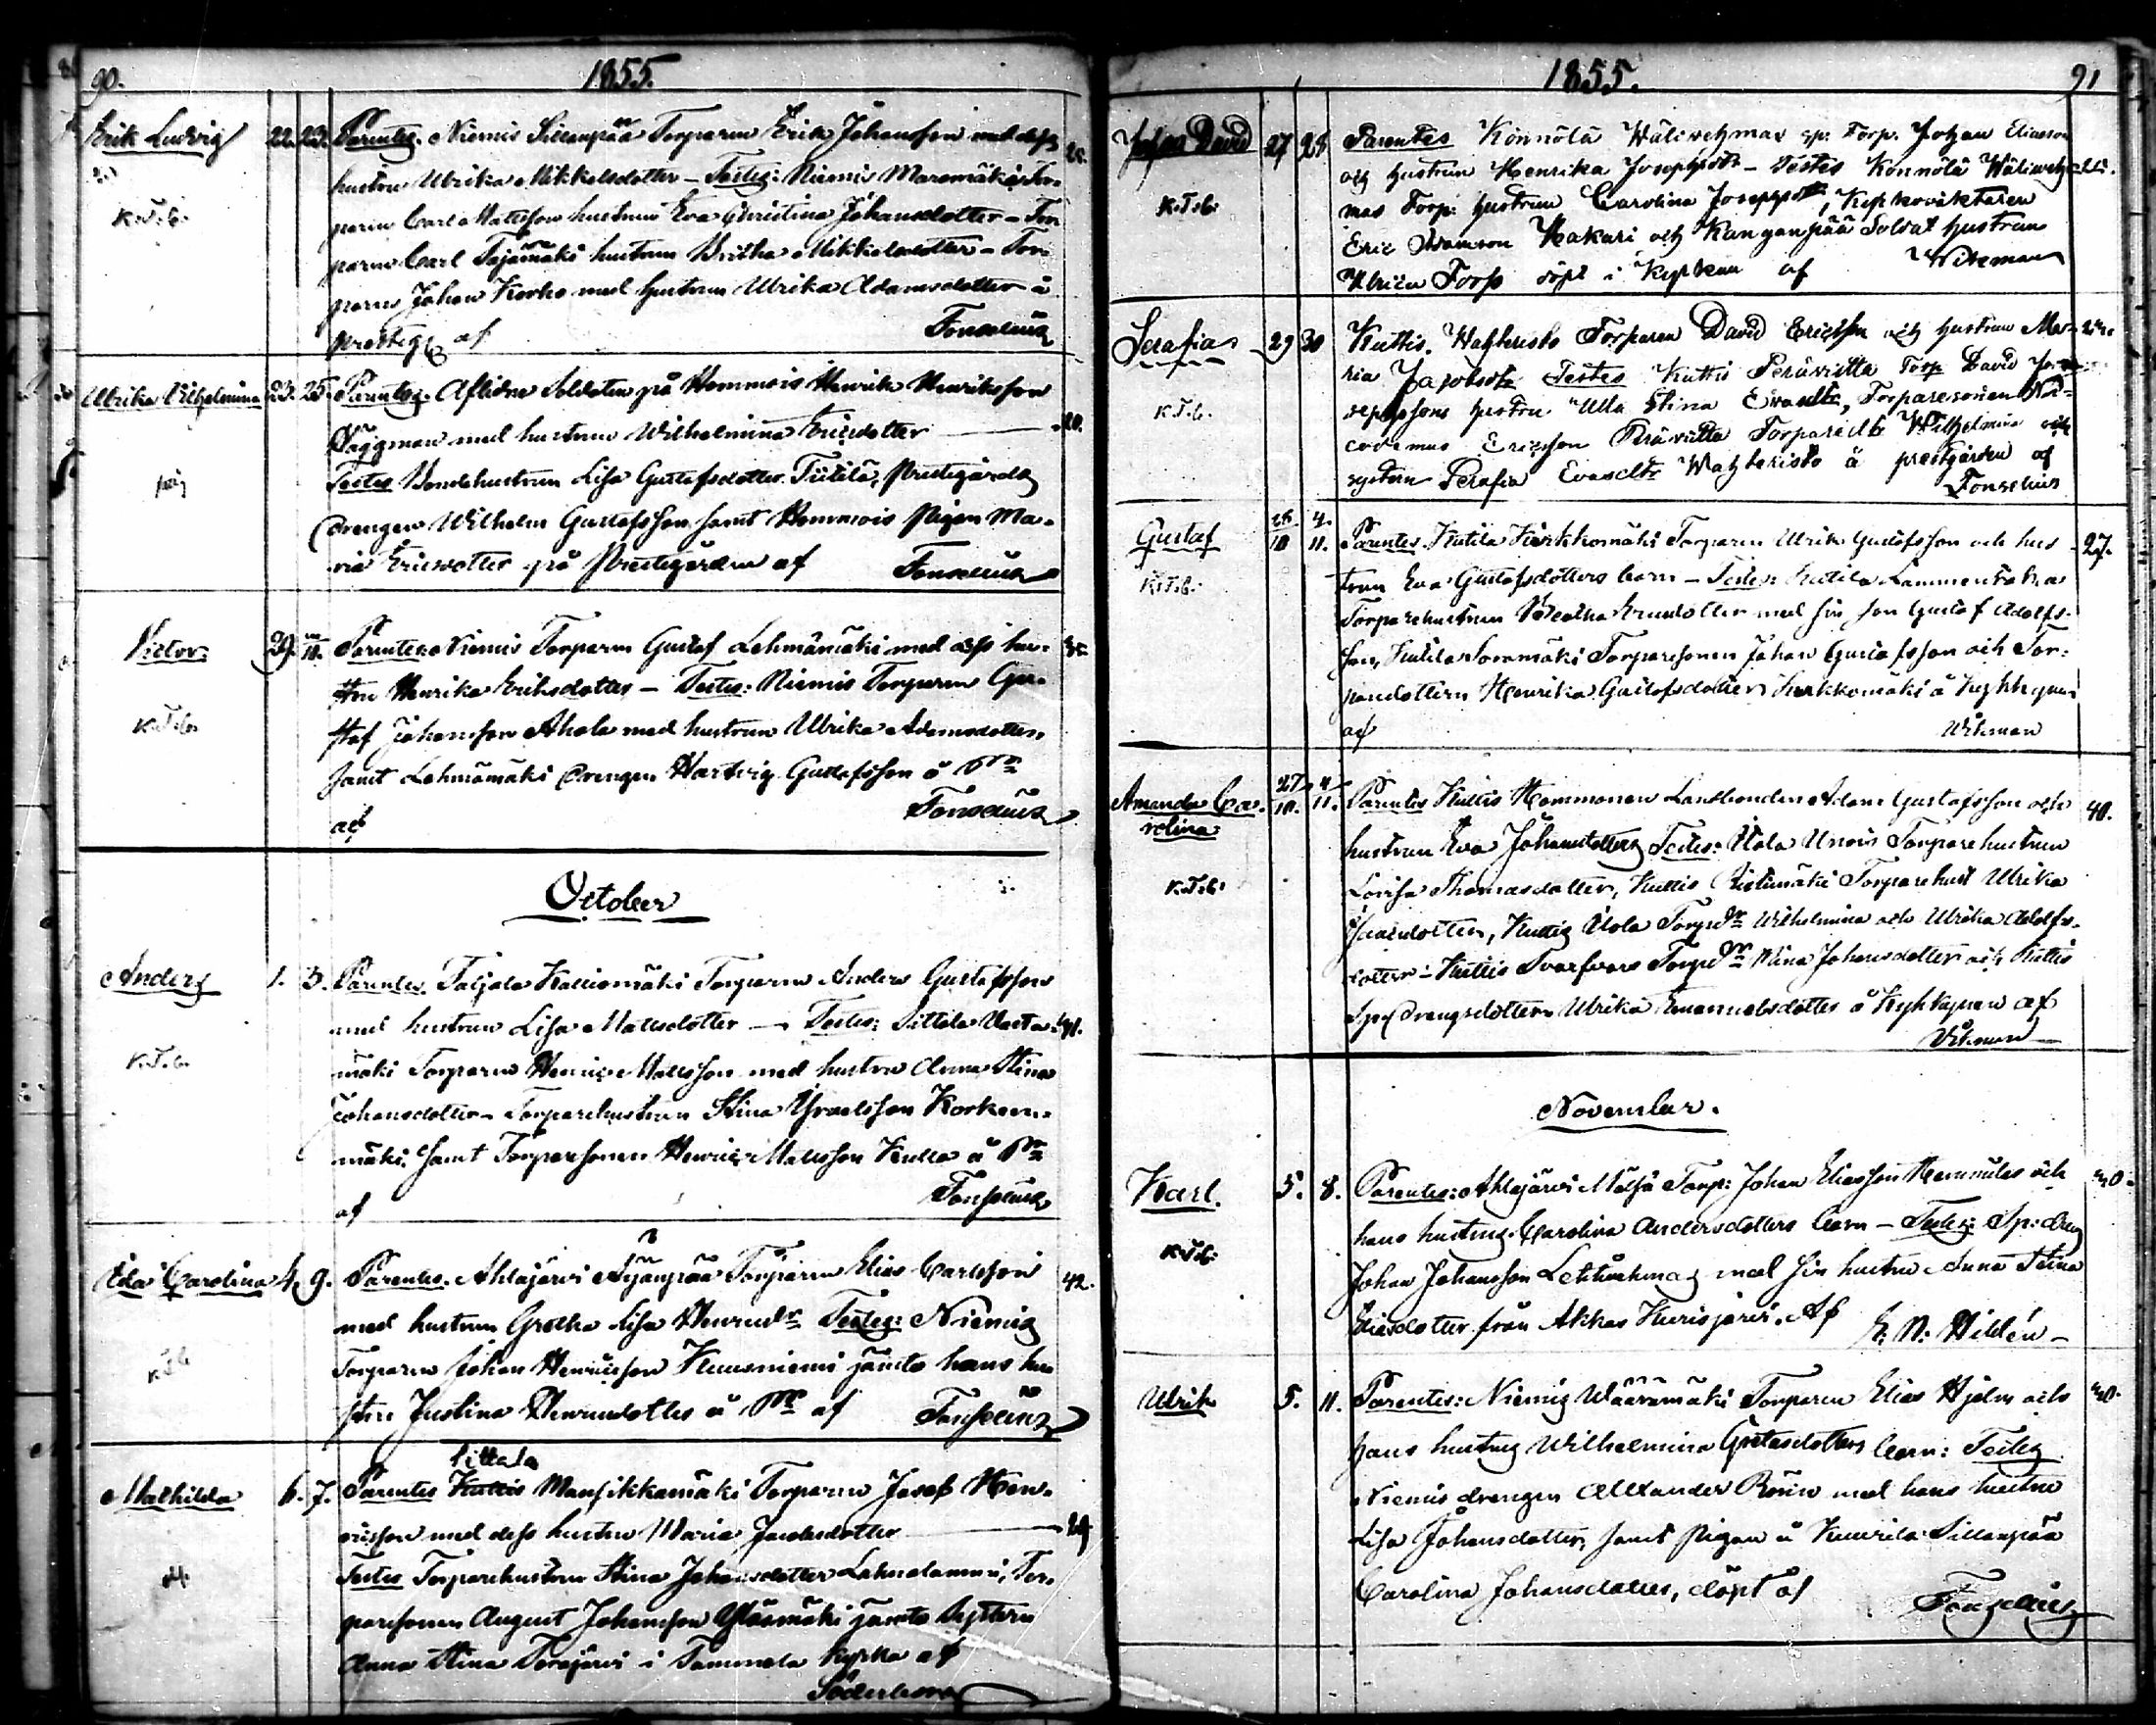 90.
1855.
Erik Ludvig 22. 23. Parentes. Niemis Sillanpää Torparen Erik Johansson med dess
K.T.b.
hustru Ulrika Mikkelsdotter – Testes: Niemis Maromäki Tor-
paren Carl Mattsson hustrun Eva Christina Johansdotter – Tor
paren Carl Sejamäki hustrun Britha Mikkelsdotter – Tor-
paren Johan Korko med hustrun Ulrika Adamsdotter å
prestegg af Fonselius
Ulrika Vilhelmina 23. 25. Parentes. Aflidne Soldaten på Hommois Henrik Henriksson
Däggman med hustrun Wilhelmina Ericsdotter 20.
Testes Bondehustrun Lisa Gustafsdotter Tiitilä, Prestegårds
drengen Wilhelm Gustafsson samt Hommois Pigan Ma-
ria Ericsdotter på Prestegården af Fonselius
Victor 29. 10. Parentes Niemis Torparen Gustaf Lehmämäki med dess hu-
K.T.b.
stru Henrika Eriksdotter – Testes: Niemis Torparen Gu-
staf Johansson Ahola med hustrun Ulrika Adamsdotter
samt Lehmämäki drengen Hartvig Gustafsson å
af Fonselius
October
Anders 1. 3. Parentes. Taljala Kalliomäki Torparen Anders Gustafsson
K.T.b.
med hustrun Lisa Mattsdotter – Testes: Sittala 41.
mäki Torparen Henric Mattsson med hustru Anna Stina
Johansdotter – Torparehustrun Stina Ysraelsson Korkee-
mäki samt Torparesonen Henric Mattsson Kulla å
af Fonselius
Eda Carolina 4. 9. Parentes. Ahlajärvi Äijänpää Torparen Elias Carlsson 42.
med hustrun Gretha Lisa Testes: Niemis
Torparen Johan Henricsson Kuusniemi jämte hans hu
stru Justina å af Fonselius
Sittala
Mathilda 6. 7. Parentes Kuttis Mansikkamäki Torparen Josef Hen-
ricsson med dess hustru Maria Jacobsdotter 24
Testes Torparehustrun Stina Johansdotter Lahnalammi, Tor-
paresonen August Johansson Yläämäki jämte system
Anna Stina Terajärvi i Tammela kyrka af
Söderborg
1855.
91
Johan David 27 28 Parentes Könnölä Wäliwehmas sp: Torp. Johan Eliasson
och hustrun Henrika Josephsdtr – Testes Könnölä Wäliweh-
K.T.b.
mas Torp: hustrun Carolina Josephsdtr, Kyrkovaktaren
Eric Hakari och Kanganpää Soldat hustrun
Ulrica Forss döpt i Kyrkan af Wikman
Serafia 29 30 Kuttis. Wahteristo Torparen David Ericsson och hustrun Ma-
ria Jacobsdtr Testes Kuttis Perävitta Torp David Jo-
K.T.b.
sephssons hustru Ulla Stina Evasdtr, Torparesonen Ni-
codemus Ericsson Perävitta Torparedtr Wilhelmina och
system Serafia Evasdtr Wahteristo å prestgården af
Fonselius
Gustaf 28/10 4/11. Parentes. Kutila Kirkkomäki Torparen Ulrik Gustafsson och hus 27.
K.T.b.
trun Eva Gustafsdotters barn – Testes: Kutila Lammenraha
Torparehustrun med sin son Gustaf Adolfs-
son, Kutila Sorrmäki Torparesonen Johan Gustafsson och Tor-
paredottern Henrika Gustafsdotter Kirkkomäki å Kyhkynen
af Wikman
Amanda Ca-
rolina 27/10. 4/11. Parentes Kuttis Hommonen Landbonden Adam Gustafsson och 40.
hustrun Eva Johansdotters Testes: Uola Unois Torparehustrun
K.T.b.
Lovisa Thomasdotter, Kuttis Ristimäki Torparehust Ulrika
Isacsdotter, Kuttis Uola Wilhelmina och Ulrika Adolfs-
dotter – Kuttis Svarfvars Mina Johansdotter och Kuttis
Sp: drengsdottern Ulrika Emanuelsdotter å Kyhkynen af
Wikman
November.
Karl. 5. 8. Parentes: Ahlajärvi Mälsä Torp: Johan Eliasson Hemmilas och
K.T.b.
hans hustrus Carolina Andersdotters barn – Testes: Sp: dreng
Johan Johansson med sin hustru Anna Stina
Eliaedotter från Akkas Kurisjärvi. Af E. N: Hildén –
Ulrik 5. 11. Parentes: Niemis Wäärämäki Torparen Elias Hjelm och
hans hustrus Wilhelmina Gretasdotters barn: Testes
Niemis drengen Alexander Rönn med hans hustru
Lisa Johansdotter, samt pigan å Kuurila Sillanpää
Carolina Johansdotter, döpt af Fonselius